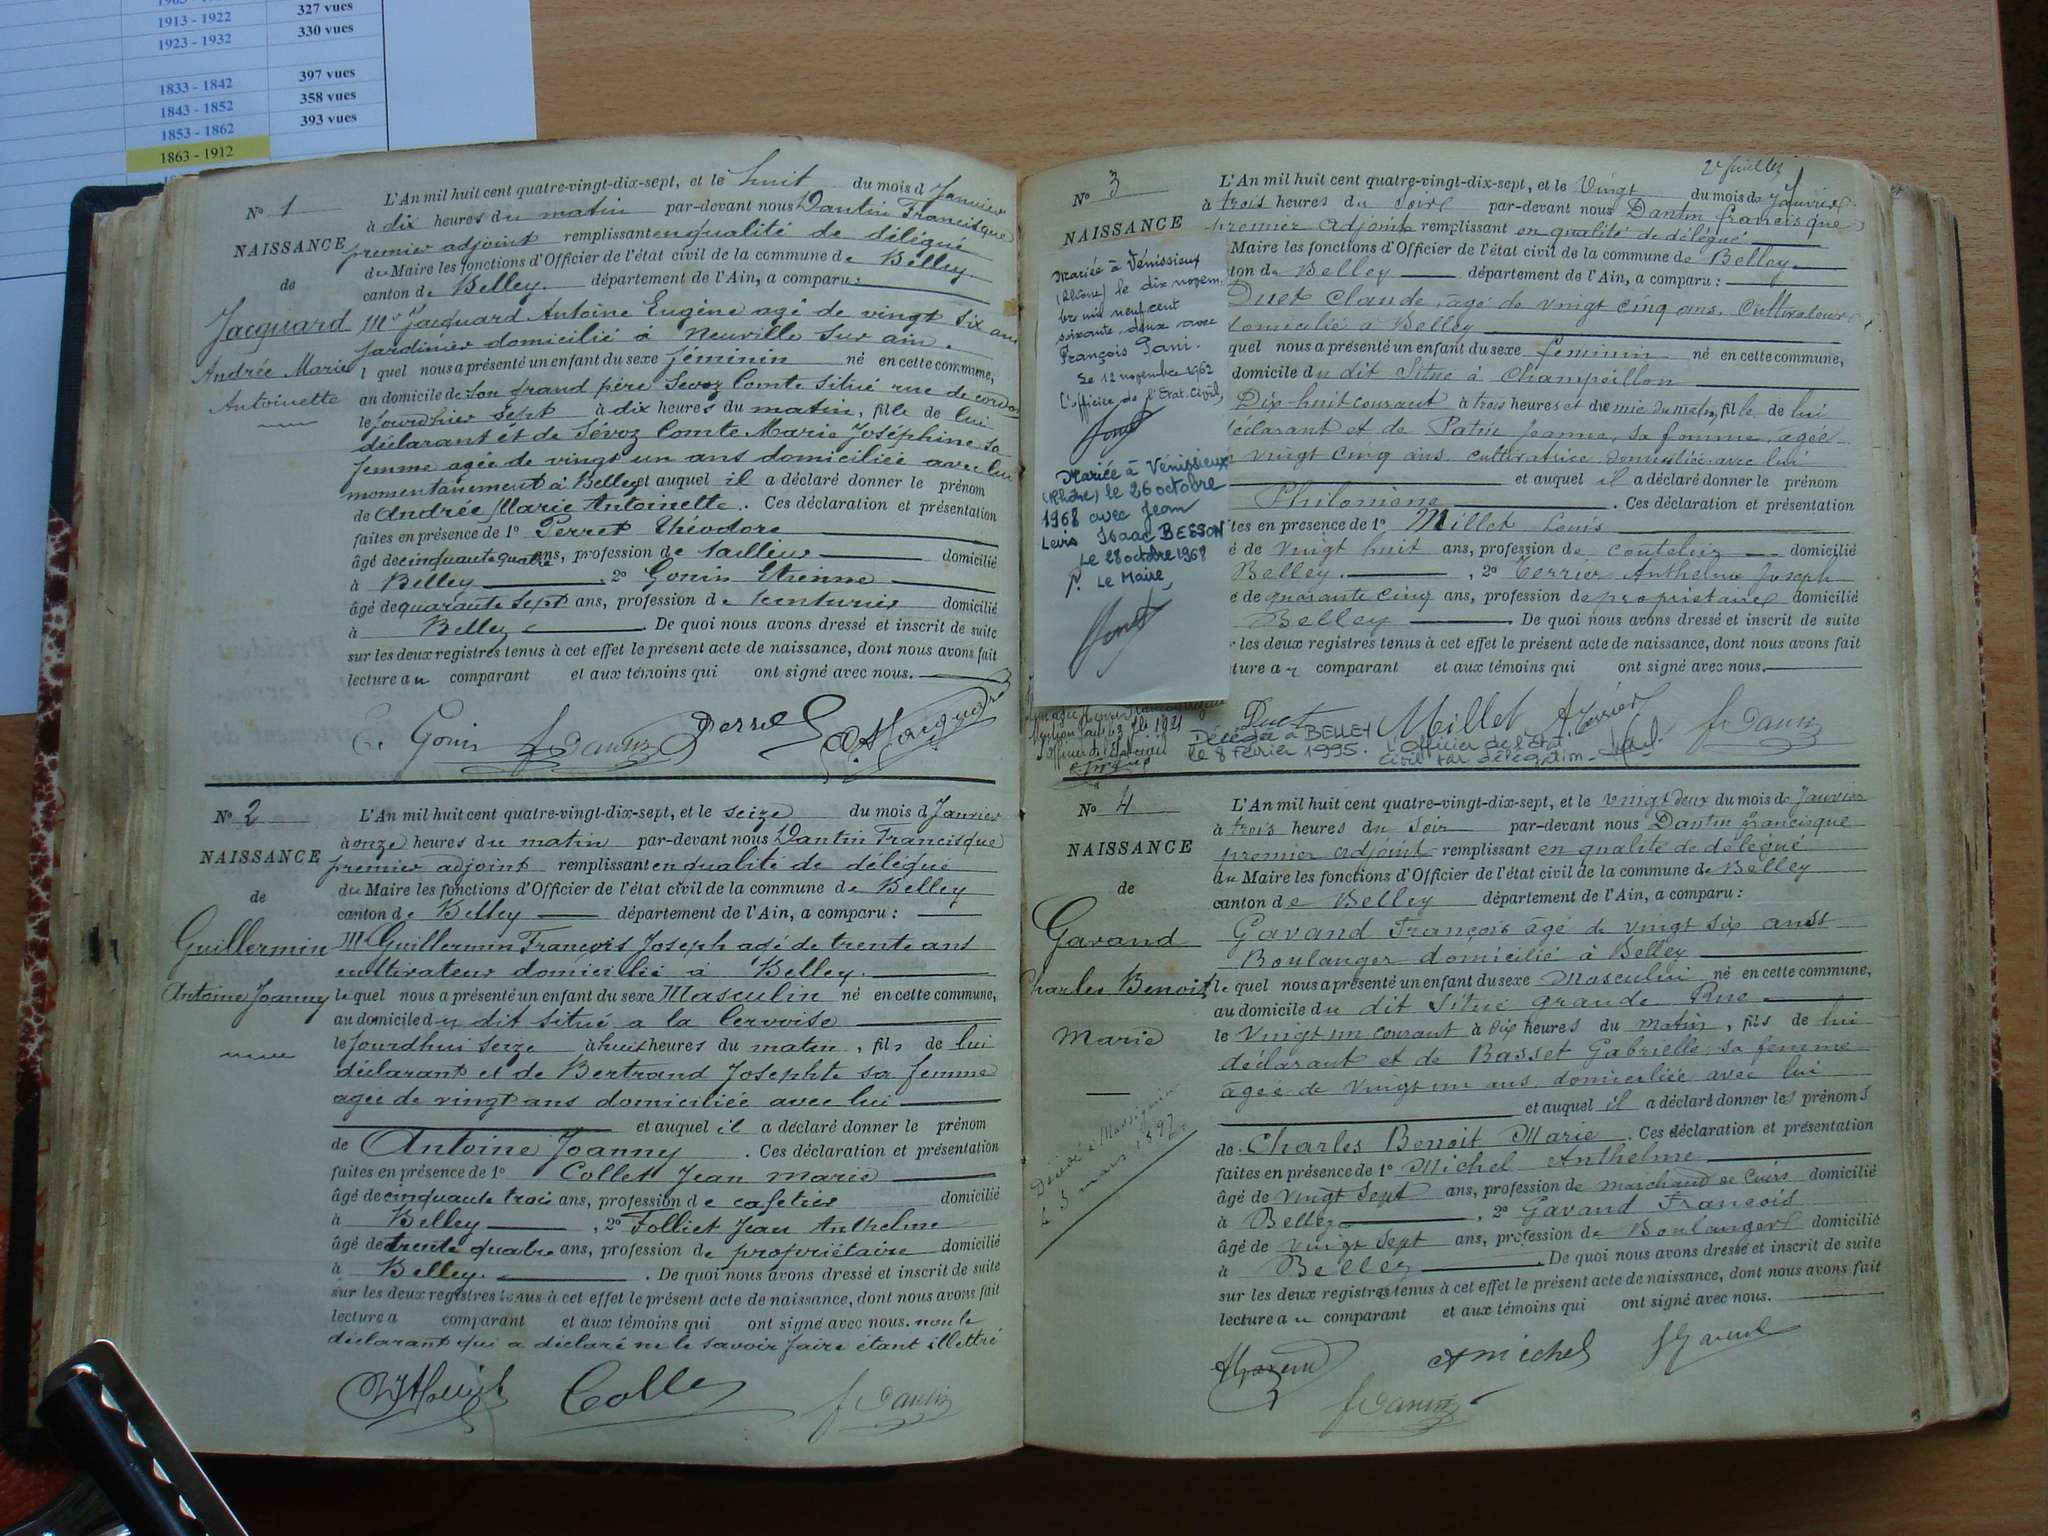 1913 - 1922 327 vues
1923 - 1932 330 vues
1833 - 1842 397 vues
1843 - 1852 358 vues
1853 - 1862 393 vues
1863 - 1912
N° 1
NAISSANCE
de
Jacquard
Andrée Marie
Antoinette
L'An mil huit cent quatre-vingt-dix-sept, et le huit du mois d Janvier
à dix heures du matin par-devant nous Dantin Francisque
premier adjoint remplissant en qualité de délégué
du Maire les fonctions d'Officier de l'état civil de la commune de Belley
canton de Belley département de l'Ain, a comparu :
Mr Jacquard Antoine Eugène agé de vingt six ans
jardinier domicilié à Neuville sur ain.
l quel nous a présenté un enfant du sexe féminin né en cette commune,
au domicile de son grand père Sevoz Comte situé rue de
le jourdhier sept à dix heures du matin, fille de lui
déclarant et de Sévoz Comte Marie Joséphine sa
femme agée de vingt un ans domiciliée avec lui
momentanément à Belley et auquel il a déclaré donner le prénom
de Andrée Marie Antoinette. Ces déclaration et présentation
faites en présence de 1° Perret théodore
âgé de cinquante quatre ans, profession de tailleur domicilié
à Belley, 2° Gonin Etienne
âgé de quarante sept ans, profession de teinturier domicilié
à Belley. De quoi nous avons dressé et inscrit de suite
sur les deux registres tenus à cet effet le présent acte de naissance, dont nous avons fait
lecture au comparant et aux témoins qui ont signé avec nous.
Gonin f Dantin Perret
N° 2
NAISSANCE
de
Guillermin
Antoine Joanny
L'An mil huit cent quatre-vingt-dix-sept, et le seize du mois d Janvier
à onze heures du matin par-devant nous Dantin Francisque
premier adjoint remplissant en qualité de délégué
du Maire les fonctions d'Officier de l'état civil de la commune de Belley
canton de Belley département de l'Ain, a comparu :
Mr Guillermin François Joseph agé de trente ans
cultivateur domicilié à Belley.
le quel nous a présenté un enfant du sexe Masculin né en cette commune,
au domicile du dit situé a la Cervoise
le jourdhui seize à huit heures du matin, fils de lui
déclarant et de Bertrand Josephte sa femme
agée de vingt ans domiciliée avec lui
et auquel il a déclaré donner le prénom
de Antoine Joanny. Ces déclaration et présentation
faites en présence de 1° Collet Jean marie
âgé de cinquante trois ans, profession de cafetier domicilié
à Belley, 2° Folliet Jean Anthelme
âgé de trente quatre ans, profession de propriétaire domicilié
à Belley. De quoi nous avons dressé et inscrit de suite
sur les deux registres tenus à cet effet le présent acte de naissance, dont nous avons fait
lecture a comparant et aux témoins qui ont signé avec nous. non le
déclarant qui a déclaré ne le savoir faire étant illettré
Collet f Dantin
2e feuillet
N° 3
NAISSANCE
Mariée à Vénissieux
(Rhône) le dix novem-
bre mil neuf cent
soixante deux avec
François Pani.
Le 12 novembre 1962
L'officier de l'Etat. Civil,
Mariée à Vénissieux
(Rhône) le 26 octobre
1968 avec Jean
Louis Isaac BESSON
Le 28 octobre 1968
P. Le Maire,
L'An mil huit cent quatre-vingt-dix-sept, et le Vingt du mois de Janvier
à trois heures du Soir par-devant nous Dantin francisque
premier adjoint remplissant en qualité de délégué
Maire les fonctions d'Officier de l'état civil de la commune de Belley
ton de Belley département de l'Ain, a comparu :
Duet Claude, âgé de vingt cinq ans, Cultivateur
domicilié à Belley
quel nous a présenté un enfant du sexe féminin né en cette commune,
domicile du dit Situé à Champeillon
Dix huit courant à trois heures et demie du matin, fille de lui
déclarant et de Patin Jeanne, sa femme, agée
vingt cinq ans, cultivatrice domiciliée avec lui
et auquel il a déclaré donner le prénom
Philomène Ces déclaration et présentation
tes en presence de 1° Millet Louis
é de vingt huit ans, profession de coutelier domicilié
Belley, 2° Terrier Anthelme Joseph
é de quarante cinq ans, profession de propriétaire domicilié
Belley. De quoi nous avons dressé et inscrit de suite
r les deux registres tenus à cet effet le présent acte de naissance, dont nous avons fait
ture au comparant et aux témoins qui ont signé avec nous.
Duet Millet Terrier f Dantin
Décédée à BELLEY
le 8 Février 1995.
L'Officier de l'Etat
Civil par délégation.
N° 4
NAISSANCE
de
Gavand
Charles Benoit
Marie
Décédé à Massignieu
le 5 mars 1897
L'An mil huit cent quatre-vingt-dix-sept, et le vingt deux du mois de Janvier
à trois heures du soir par-devant nous Dantin francisque
premier adjoint remplissant en qualité de délégué
du Maire les fonctions d'Officier de l'état civil de la commune de Belley
canton de Belley département de l'Ain, a comparu :
Gavand François âgé de vingt six ans
Boulanger domicilié à Belley
le quel nous a présenté un enfant du sexe Masculin né en cette commune,
au domicile du dit Situé grande Rue
le Vingt un courant à dix heures du matin, fils de lui
déclarant et de Basset Gabrielle, sa femme
âgée de vingt un ans, domiciliée avec lui
et auquel il a déclaré donner les prénoms
de Charles Benoit Marie. Ces déclaration et présentation
faites en présence de 1° Michel Anthelme
âgé de vingt sept ans, profession de marchand de Cuirs domicilié
à Belley, 2° Gavand François
âgé de vingt sept ans, profession de Boulanger domicilié
à Belley. De quoi nous avons dressé et inscrit de suite
sur les deux registres tenus à cet effet le présent acte de naissance, dont nous avons fait
lecture au comparant et aux témoins qui ont signé avec nous.
A michel
f Dantin